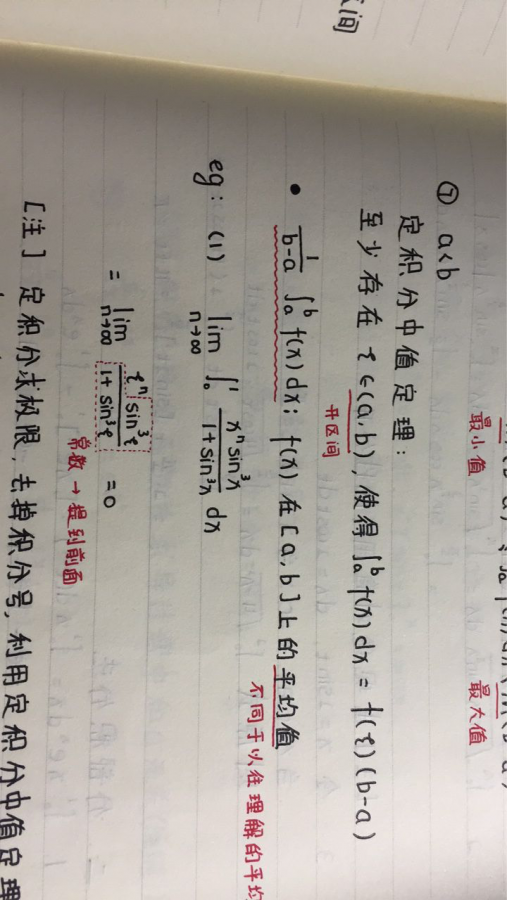 区间
最小值
最大值
⑦ a<b
定积分中值定理:
至少存在 ξ∈(a,b), 使得 ∫ₐᵇ f(x)dx = f(ξ)(b-a)
开区间
• 1/(b-a) ∫ₐᵇ f(x)dx: f(x) 在 [a,b] 上的平均值
不同于以往理解的平均
eg: (1) lim n→∞ ∫₀¹ xⁿsin³x/(1+sin³x) dx
= lim n→∞ ξⁿ sin³ξ/(1+sin³ξ) = 0
常数→提到前面
[注] 定积分求极限, 去掉积分号, 利用定积分中值定理